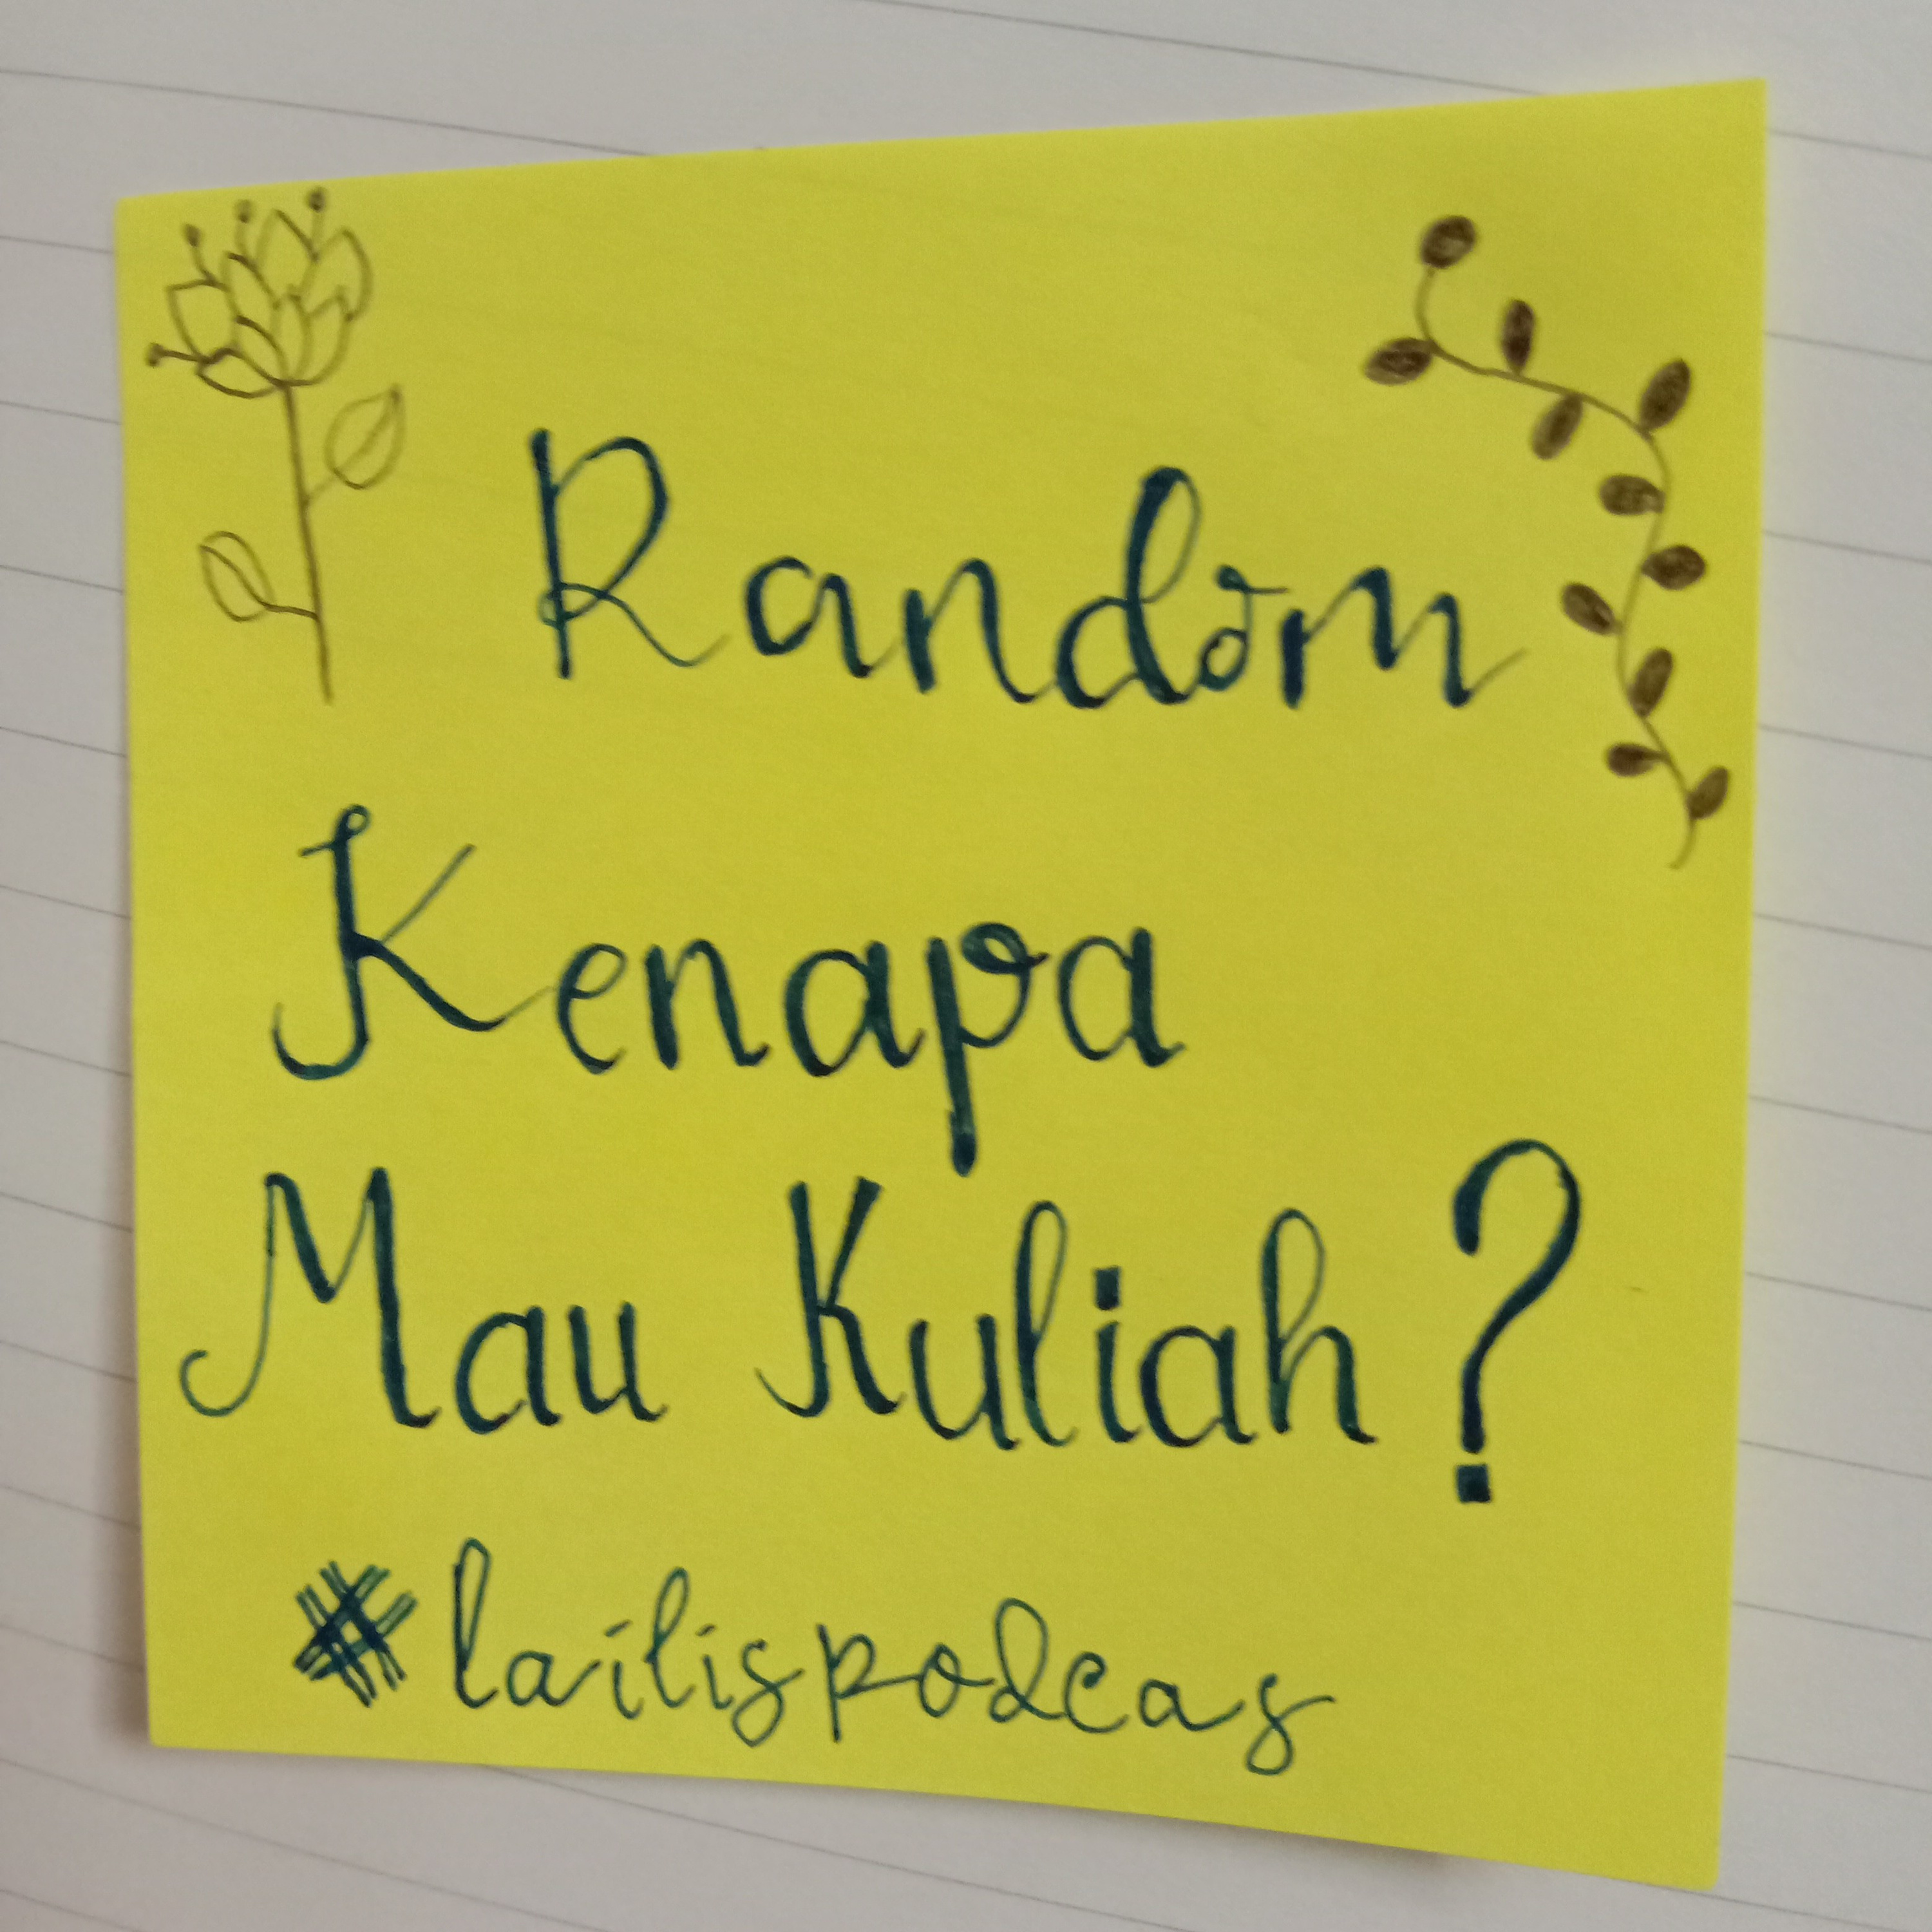 Random
Kenapa
Mau Kuliah?
#lailispodcas